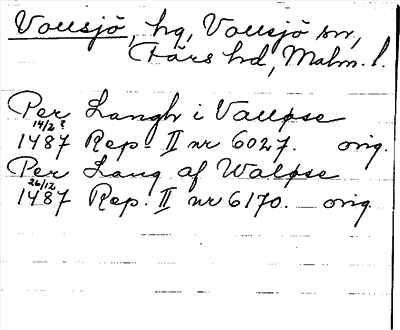 Vollsjö, hg, Vollsjö sn,
Färs hd, Malm. l.
Per Langh i Vallpse
14/2 ?
1487 Rep. II nr 6027. orig.
Per Lang af Walpse
26/12
1487 Rep. II nr 6170. orig.